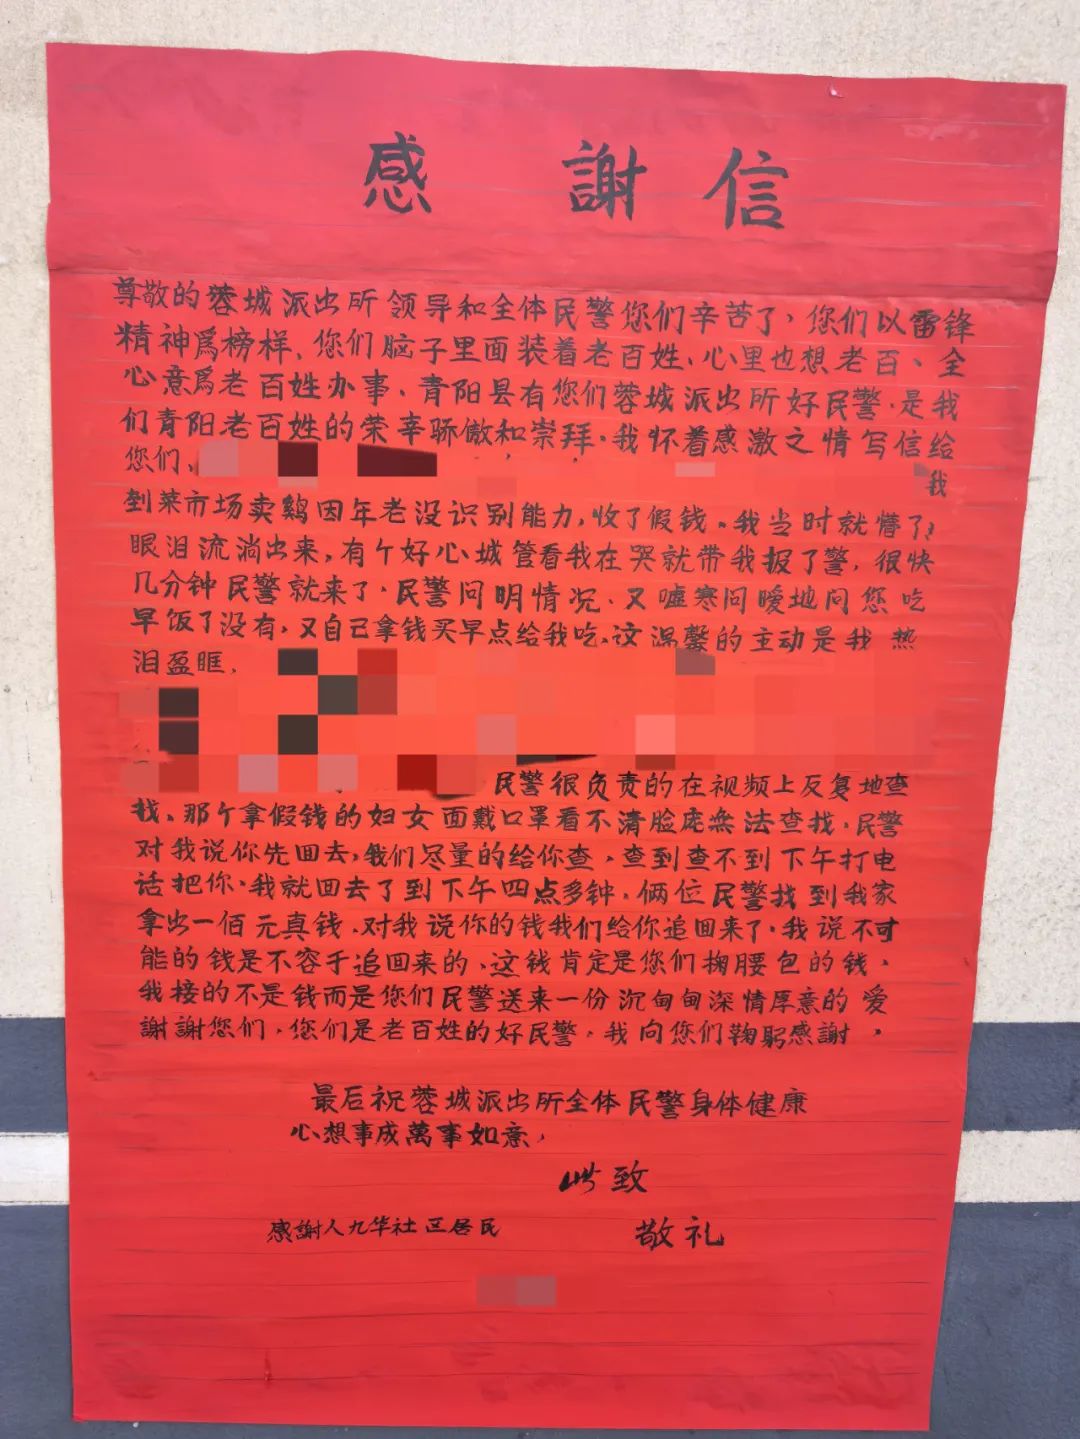 感謝信
尊敬的蓉城派出所领导和全体民警您们辛苦了，您们以雷锋
精神為榜样、您们脑子里面装着老百姓、心里也想老百、全
心意為老百姓办事、青阳县有您们蓉城派出所好民警、是我
们青阳老百姓的荣幸骄傲和崇拜。我怀着感激之情写信给
您们、
我
到菜市场卖鷄因年老没识别能力，收了假钱。我当时就懵了，
眼泪流淌出来，有个好心城管看我在哭就带我报了警，很快
几分钟民警就来了，民警问明情况、又嘘寒问暧地问您吃
早饭了没有，又自己拿钱买早点给我吃。这温馨的主动是我热
泪盈眶、
民警很负责的在视频上反复地查
找、那个拿假钱的妇女面戴口罩看不清脸庞無法查找，民警
对我说你先回去，我们尽量的给你查，查到查不到下午打电
话把你，我就回去了到下午四点多钟，俩位民警找到我家
拿出一佰元真钱、对我说你的钱我们给你追回来了。我说不可
能的钱是不容于追回来的、这钱肯定是您们掏腰包的钱，
我接的不是钱而是您们民警送来一份沉甸甸深情厚意的爱
謝謝您们，您们是老百姓的好民警，我向您们鞠躬感謝，
最后祝蓉城派出所全体民警身体健康
心想事成萬事如意，
此致
感謝人九华社区居民 敬礼